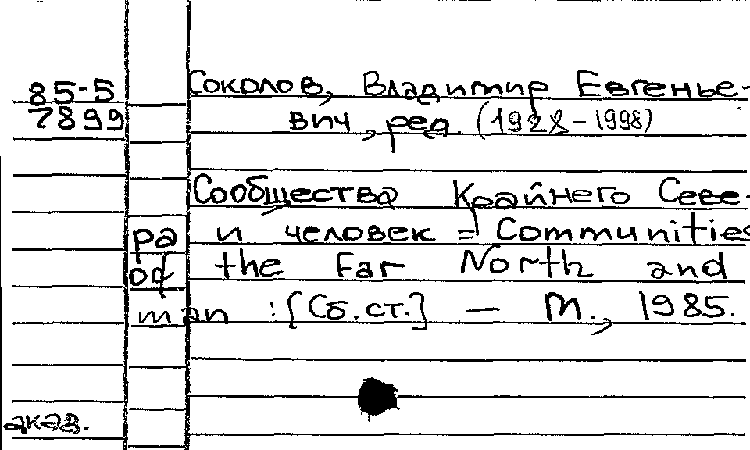 85-5 Соколов, Владимир Евгенье-
7899 вич, ред. (1928-1998)
Сообщества Крайнего Севе-
ра и человек = Communities
of the Far North and
man : [Сб. ст.] — М., 1985.
акад.